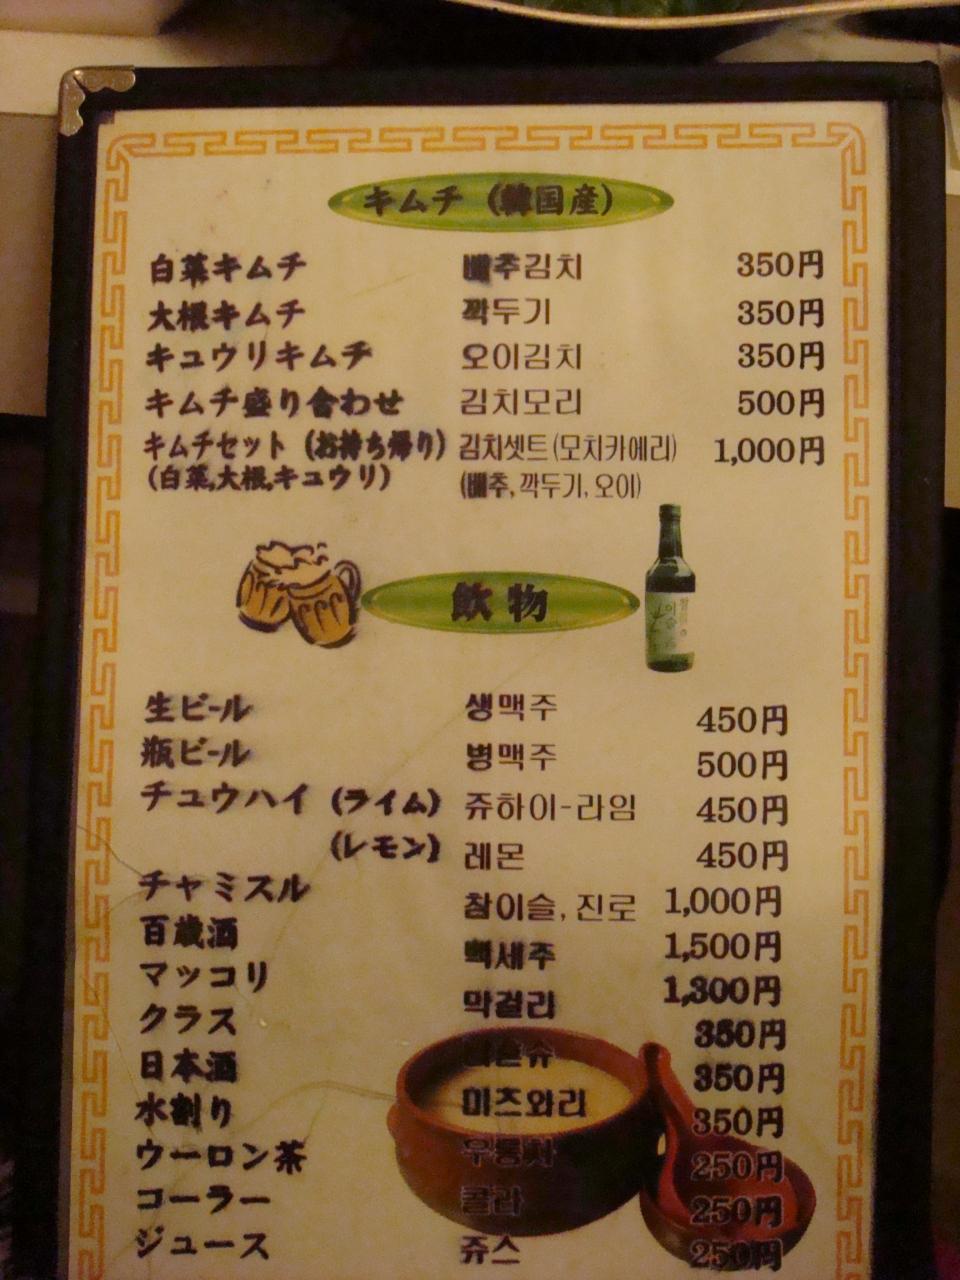 キムチ (韓国産)
白菜キムチ 배추김치 350円
大根キムチ 깍두기 350円
キュウリキムチ 오이김치 350円
キムチ盛り合わせ 김치모리 500円
キムチセット (お持ち帰り) 김치셋트(모치카에리) 1,000円
(白菜,大根,キュウリ) (배추, 깍두기, 오이)
飲物
이슬
生ビール 생맥주 450円
瓶ビール 병맥주 500円
チュウハイ (ライム) 쥬하이-라임 450円
(レモン) 레몬 450円
チャミスル 참이슬, 진로 1,000円
百歳酒 백세주 1,500円
マッコリ 막걸리 1,300円
クラス 350円
日本酒 니혼슈 350円
水割り 미즈와리 350円
ウーロン茶 우롱차 250円
コーラー 콜라 250円
ジュース 쥬스 250円